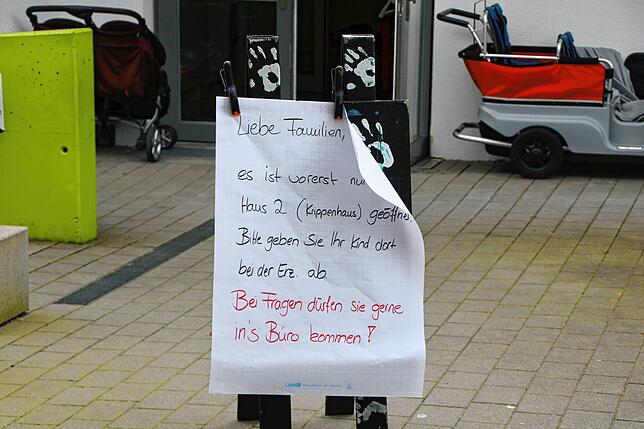 Liebe Familien,
es ist vorerst nur
Haus 2 (Krippenhaus) geöffnet.
Bitte geben Sie Ihr Kind dort
bei der Erz. ab.
Bei Fragen dürfen sie gerne
in's Büro kommen!